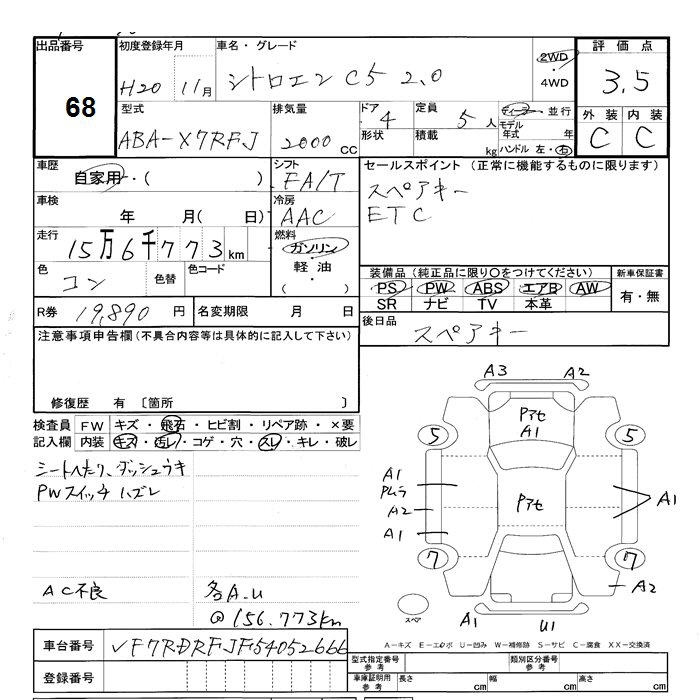 出品番号
68
初度登録年月
H20 11月
車名・グレード
シトロエン C5 2.0
2WD
・
4WD
評価点
3.5
型式
ABA-X7RFJ
排気量
2000 CC
ドア 4
形状
定員 5人
積載 kg
ディーラー・並行
モデル
年式 年
ハンドル 左・右
外装 内装
C C
車歴
自家用・( )
シフト
FA/T
セールスポイント (正常に機能するものに限ります)
スペアキー
ETC
車検
年 月( 日)
冷房
AAC
走行
15万6千773km
燃料
ガソリン
・
軽油
・
( )
色
コン
色替
色コード
装備品(純正品に限り○をつけてください)
PS PW ABS エアB AW
SR ナビ TV 本革
新車保証書
有・無
R券 19,890円
名変期限 月 日
後日品
スペアキー
注意事項申告欄(不具合内容等は具体的に記入して下さい)
修復歴 有 〔箇所 〕
検査員 FW キズ・飛石・ヒビ割・リペア跡・×要
記入欄 内装 キズ・汚レ・コゲ・穴・スレ・キレ・破レ
シートへたり、ダッシュウキ
PWスイッチハズレ
AC不良
各A.U
@156.773km
A3 A2
Pアセ
A1
5 5
A1
Pムラ
A2
A1
Pアセ
A1
7 7
A2
スペア
A1 U1
A-キズ E-エクボ U-凹み W-補修跡 S-サビ C-腐食 XX-交換済
車台番号 VF7RDRFJF54052666
登録番号
型式指定番号
参考
類別区分番号
参考
車庫証明用
参考
長さ cm
幅 cm
高さ cm